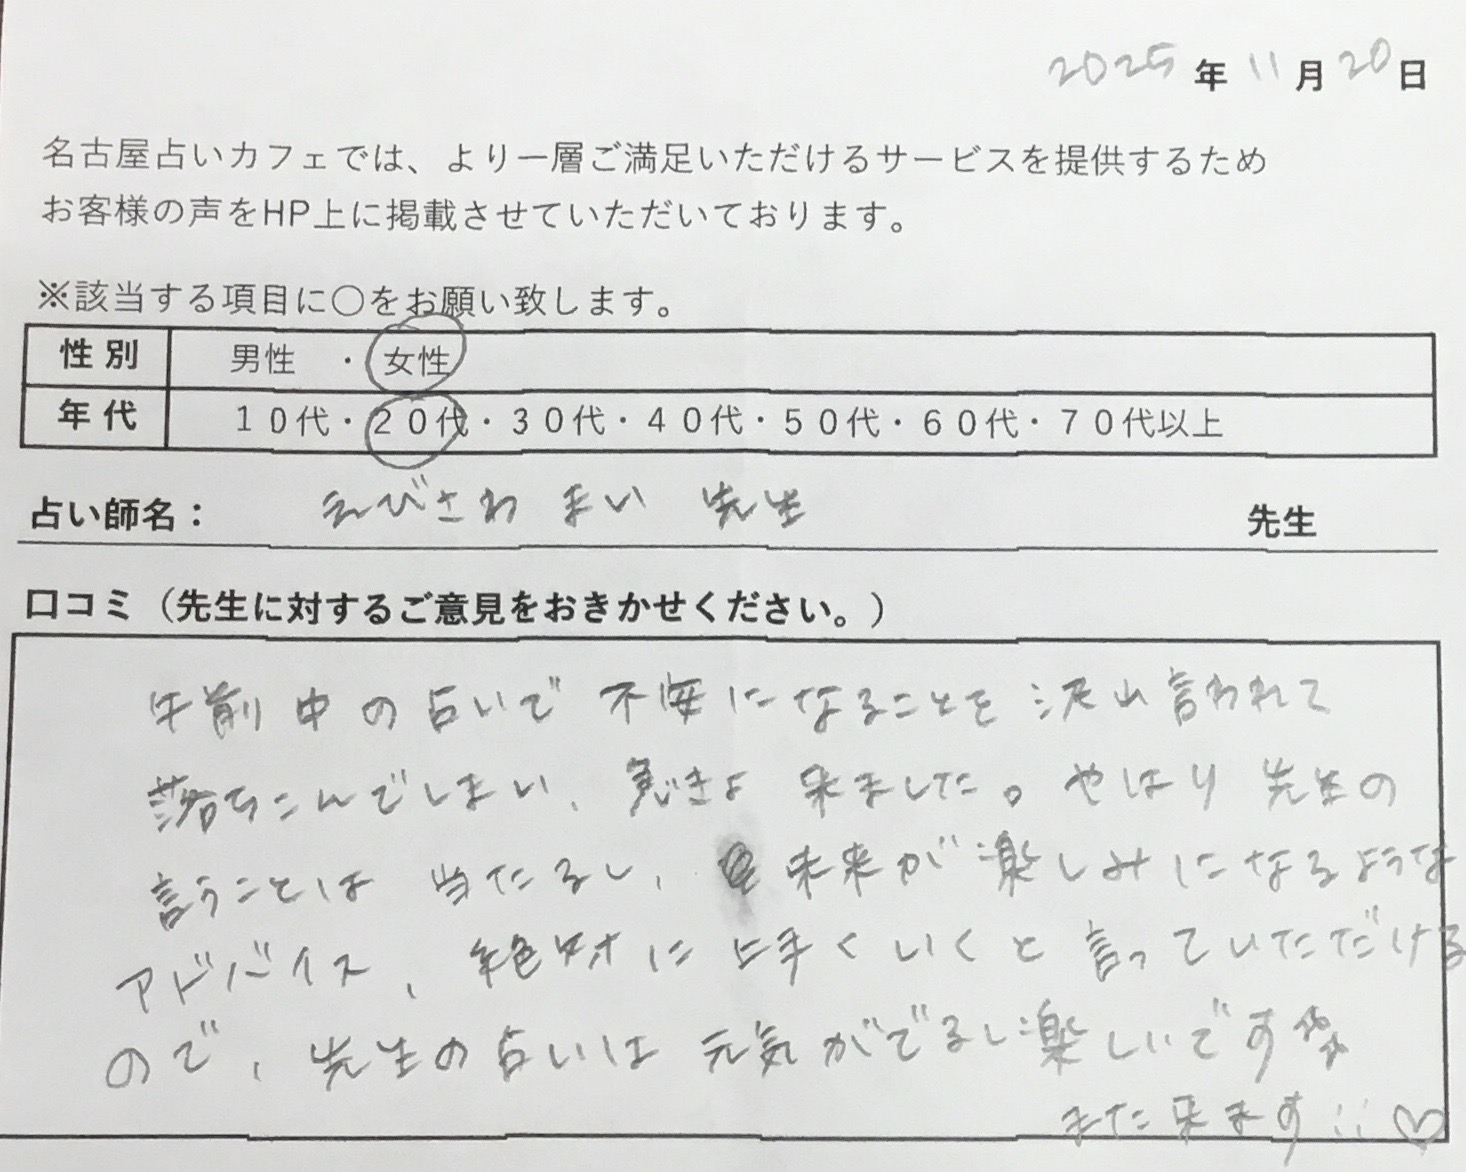 2025年11月20日
名古屋占いカフェでは、より一層ご満足いただけるサービスを提供するため
お客様の声をHP上に掲載させていただいております。
※該当する項目に〇をお願い致します。
性別 男性 ・ 女性
年代 10代・20代・30代・40代・50代・60代・70代以上
占い師名： えびさわ まい 先生 先生
口コミ（先生に対するご意見をおきかせください。）
午前中の占いで不安になることを沢山言われて
落ちこんでしまい、急きょ来ました。やはり先生の
言うことは当たるし、未来が楽しみになるような
アドバイス、絶対に上手くいくと言っていただける
ので、先生の占いは元気がでるし楽しいです
また来ます!!♡